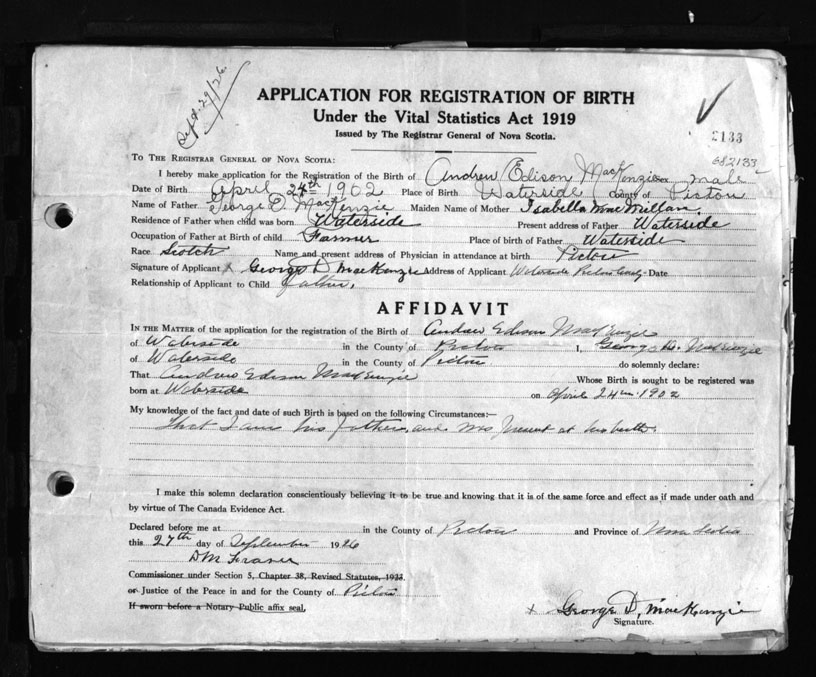 Sept. 29/26
APPLICATION FOR REGISTRATION OF BIRTH
Under the Vital Statistics Act 1919
Issued by The Registrar General of Nova Scotia.
2133
682133
TO THE REGISTRAR GENERAL OF NOVA SCOTIA:
I hereby make application for the Registration of the Birth of Andrew Edison MacKenzie sex male
Date of Birth April 24th 1902 Place of Birth Waterside County of Pictou
Name of Father George D MacKenzie Maiden Name of Mother Isabella MacMillan
Residence of Father when child was born Waterside Present address of Father Waterside
Occupation of Father at Birth of child Farmer Place of birth of Father Waterside
Race Scotch Name and present address of Physician in attendance at birth Pictou
Signature of Applicant x George D MacKenzie Address of Applicant Waterside Pictou County Date
Relationship of Applicant to Child father.
AFFIDAVIT
IN THE MATTER of the application for the registration of the Birth of Andrew Edison MacKenzie
of Waterside in the County of Pictou I, George D. MacKenzie
of Waterside in the County of Pictou do solemnly declare:
That Andrew Edison MacKenzie Whose Birth is sought to be registered was
born at Waterside on April 24th 1902
My knowledge of the fact and date of such Birth is based on the following Circumstances:—
That I am his father, and was present at his birth.
I make this solemn declaration conscientiously believing it to be true and knowing that it is of the same force and effect as if made under oath and
by virtue of The Canada Evidence Act.
Declared before me at in the County of Pictou and Province of Nova Scotia
this 27th day of September 1926
D M Fraser
Commissioner under Section 5, Chapter 38, Revised Statutes, 1923
or Justice of the Peace in and for the County of Pictou
If sworn before a Notary Public affix seal,
x George D, MacKenzie
Signature.